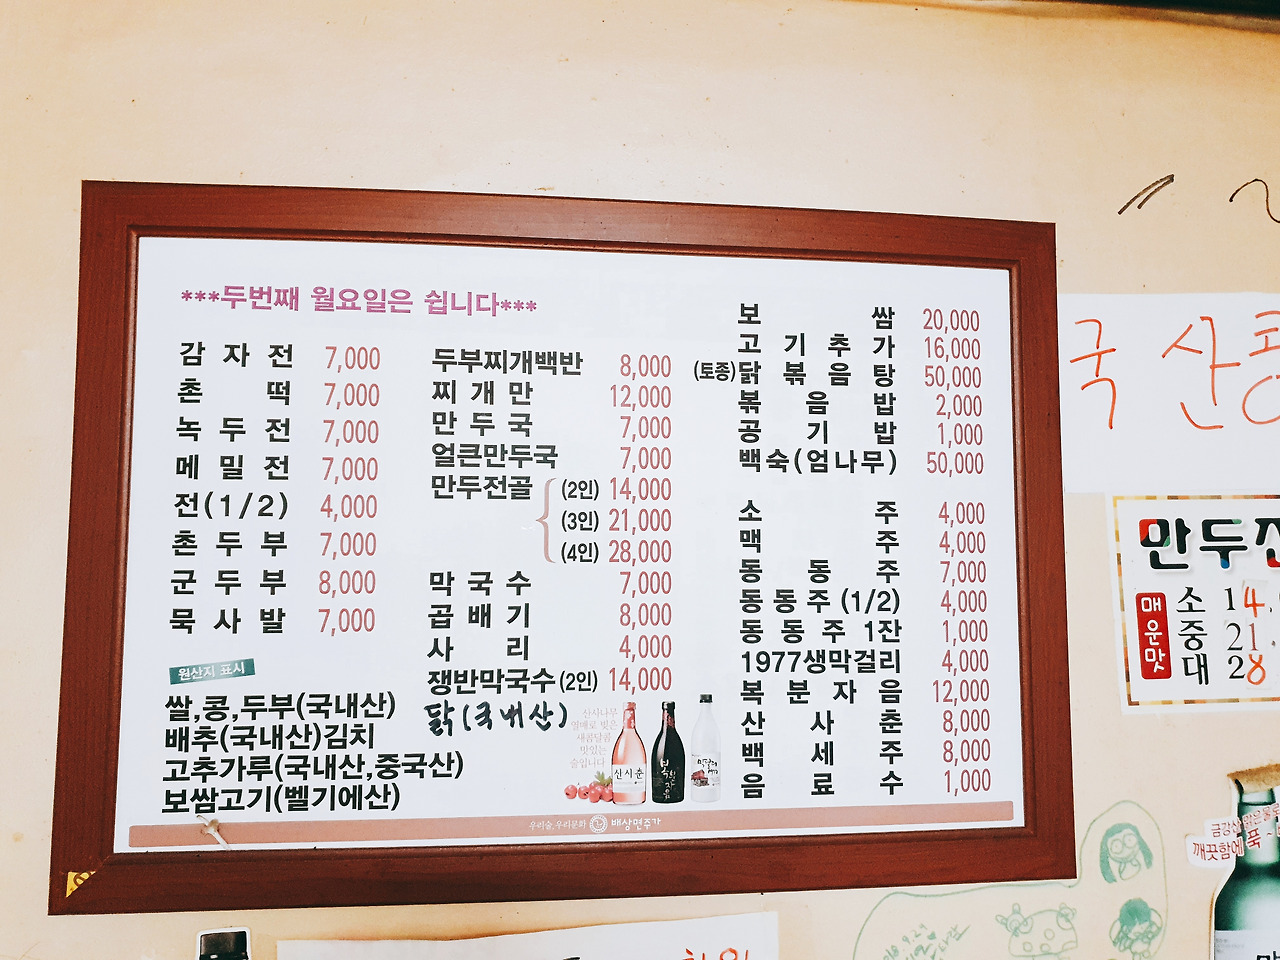 ***두번째 월요일은 쉽니다***
감자전 7,000
촌떡 7,000
녹두전 7,000
메밀전 7,000
전(1/2) 4,000
촌두부 7,000
군두부 8,000
묵사발 7,000
원산지 표시
쌀,콩,두부(국내산)
배추(국내산)김치
고추가루(국내산,중국산)
보쌈고기(벨기에산)
두부찌개백반 8,000
찌개만 12,000
만두국 7,000
얼큰만두국 7,000
만두전골 (2인) 14,000
(3인) 21,000
(4인) 28,000
막국수 7,000
곱배기 8,000
사리 4,000
쟁반막국수(2인) 14,000
닭(국내산)
산사나무
열매로 빚은
새콤달콤
맛있는
술입니다
산사춘
보쌈 20,000
고기추가 16,000
(토종)닭볶음탕 50,000
볶음밥 2,000
공기밥 1,000
백숙(엄나무) 50,000
소주 4,000
맥주 4,000
동동주 7,000
동동주(1/2) 4,000
동동주 1잔 1,000
1977생막걸리 4,000
복분자음 12,000
산사춘 8,000
백세주 8,000
음료수 1,000
우리술,우리문화 배상면주가
국산콩
만두전
매운맛
소 14.
중 21.
대 28
금강산 맑은물로
깨끗함에 푹~
9.29